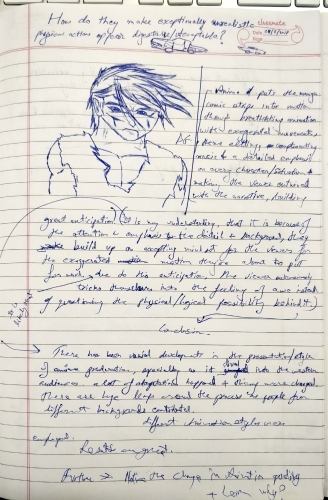 How do they make exceptionally unrealistic
physical actions appear digestable/acceptable?
classmate
Date
Page
Anime puts the manga
comic strips into motion
though breathtaking animation
with exagerated movements,
theme setting, complimenting
music & a detailed emphasis
on every character/situation
making the viewer
with the narrative, building
great anticipation. (It is my understanding that it is because of
the attention & emphasis to the detail & background, they
build up an accepting mindset for the viewers for
the exagerated motion they're about to put
forward, due to the anticipation. The viewer
tricks themselves into the feeling of awe instead
of questioning the physical/logical possibility behind it)
Conclusion -
There has been varied developments in the presentation/style
of anime production, especially as it into the western
audiences. A lot of adaptation happened & things were changed.
There are huge leaps around the process as people from
different backgrounds contributed.
different animation styles were
employed.
Further → Notice the change in animation
+ learn why?